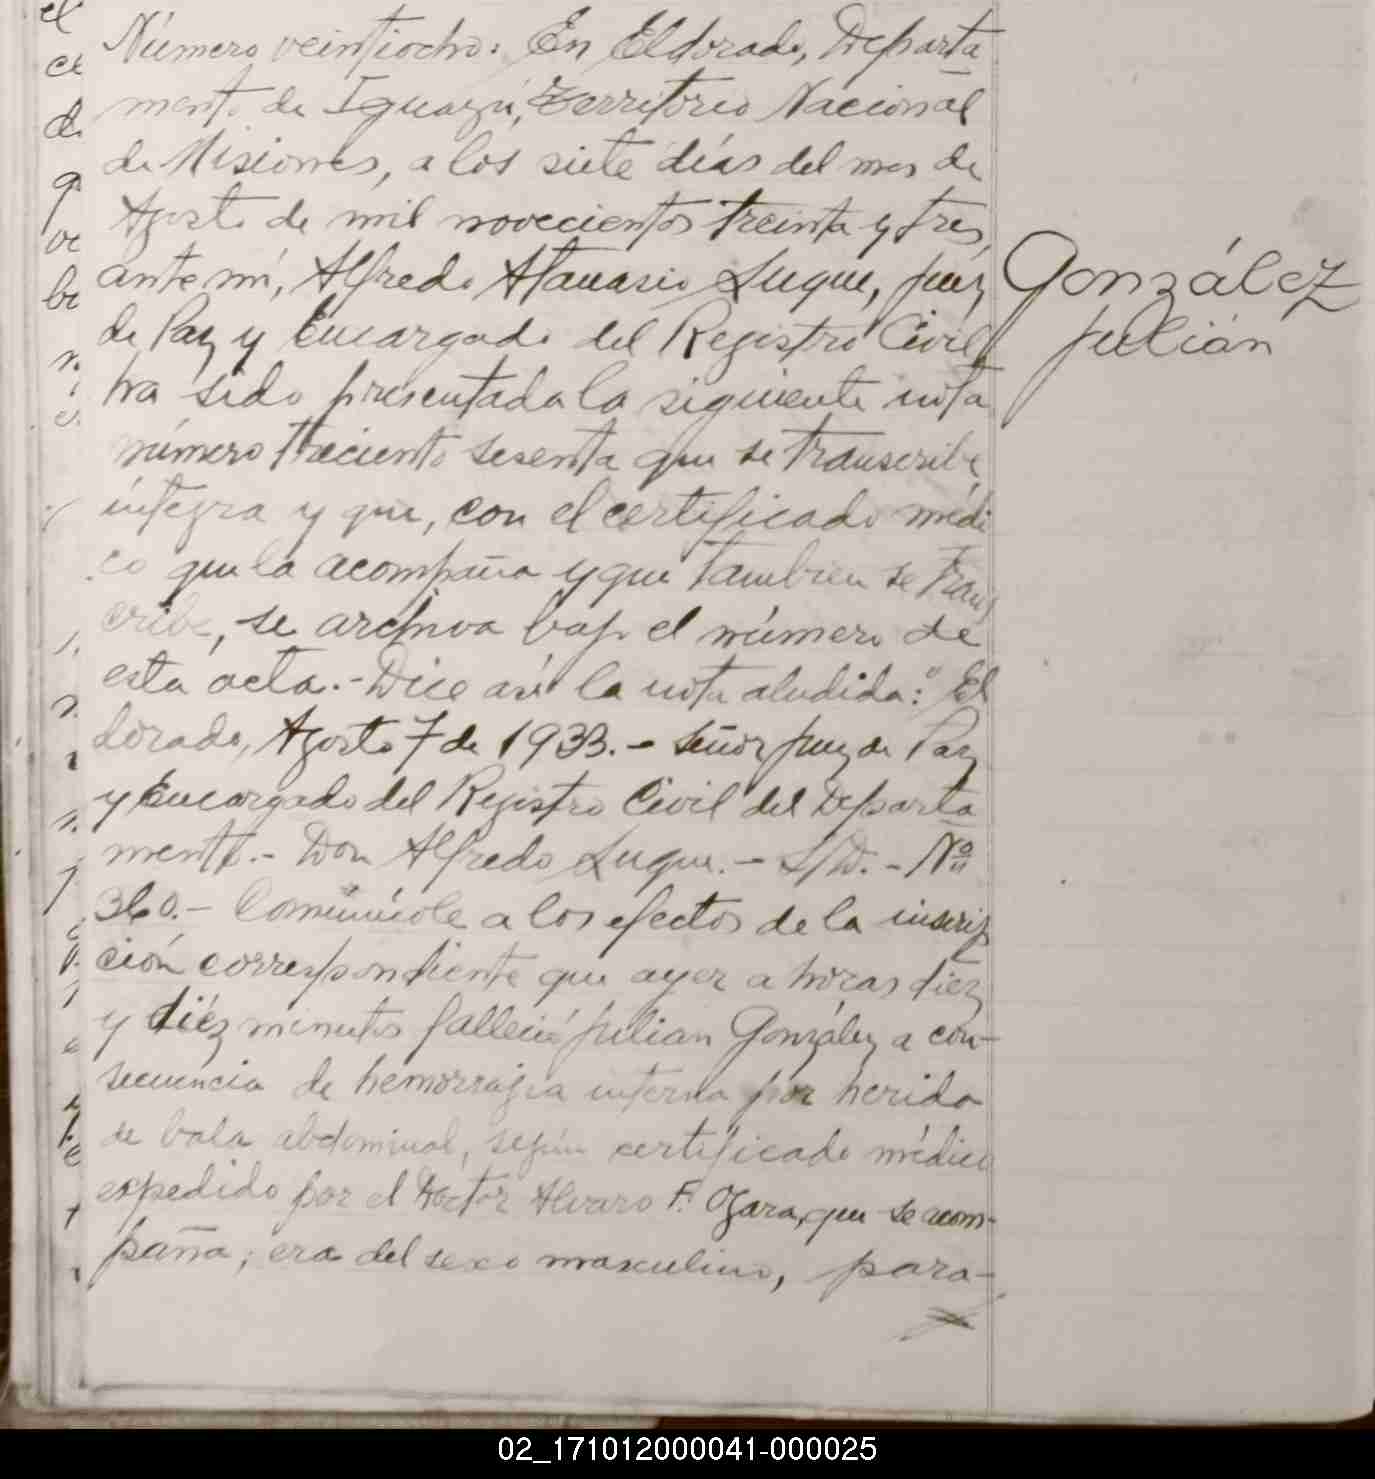 Número veintiocho: En Eldorado, Departa
mento de Iguazú, Territorio Nacional
de Misiones, a los siete días del mes de
Agosto de mil novecientos treinta y tres,
ante mí, Alfredo Atanasio Luque, Juez
de Paz y Encargado del Registro Civil,
ha sido presentada la siguiente nota
número treciento sesenta que se transcribe
íntegra y que, con el certificado médi
co que la acompaña y que tambien se trans
cribe, se archiva bajo el número de
esta acta.- Dice así la nota aludida: "El
dorado, Agosto 7 de 1933.- Señor Juez de Paz
y Encargado del Registro Civil del Departa
mento.- Don Alfredo Luque.- S/D.- Nº
360.- Comunícole a los efectos de la inscrip
ción correspondiente que ayer a horas diez
y diéz minutos falleció Julian González a con-
secuencia de hemorragia interna por herida
de bala abdominal, según certificado médico
expedido por el Doctor Alvaro F. que se acom-
paña; era del sexo masculino, para-
González
Julián
02_171012000041-000025